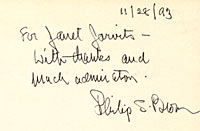 11/28/93
For Janet Jarvits –
With thanks and
much admiration.
Philip S. Brown